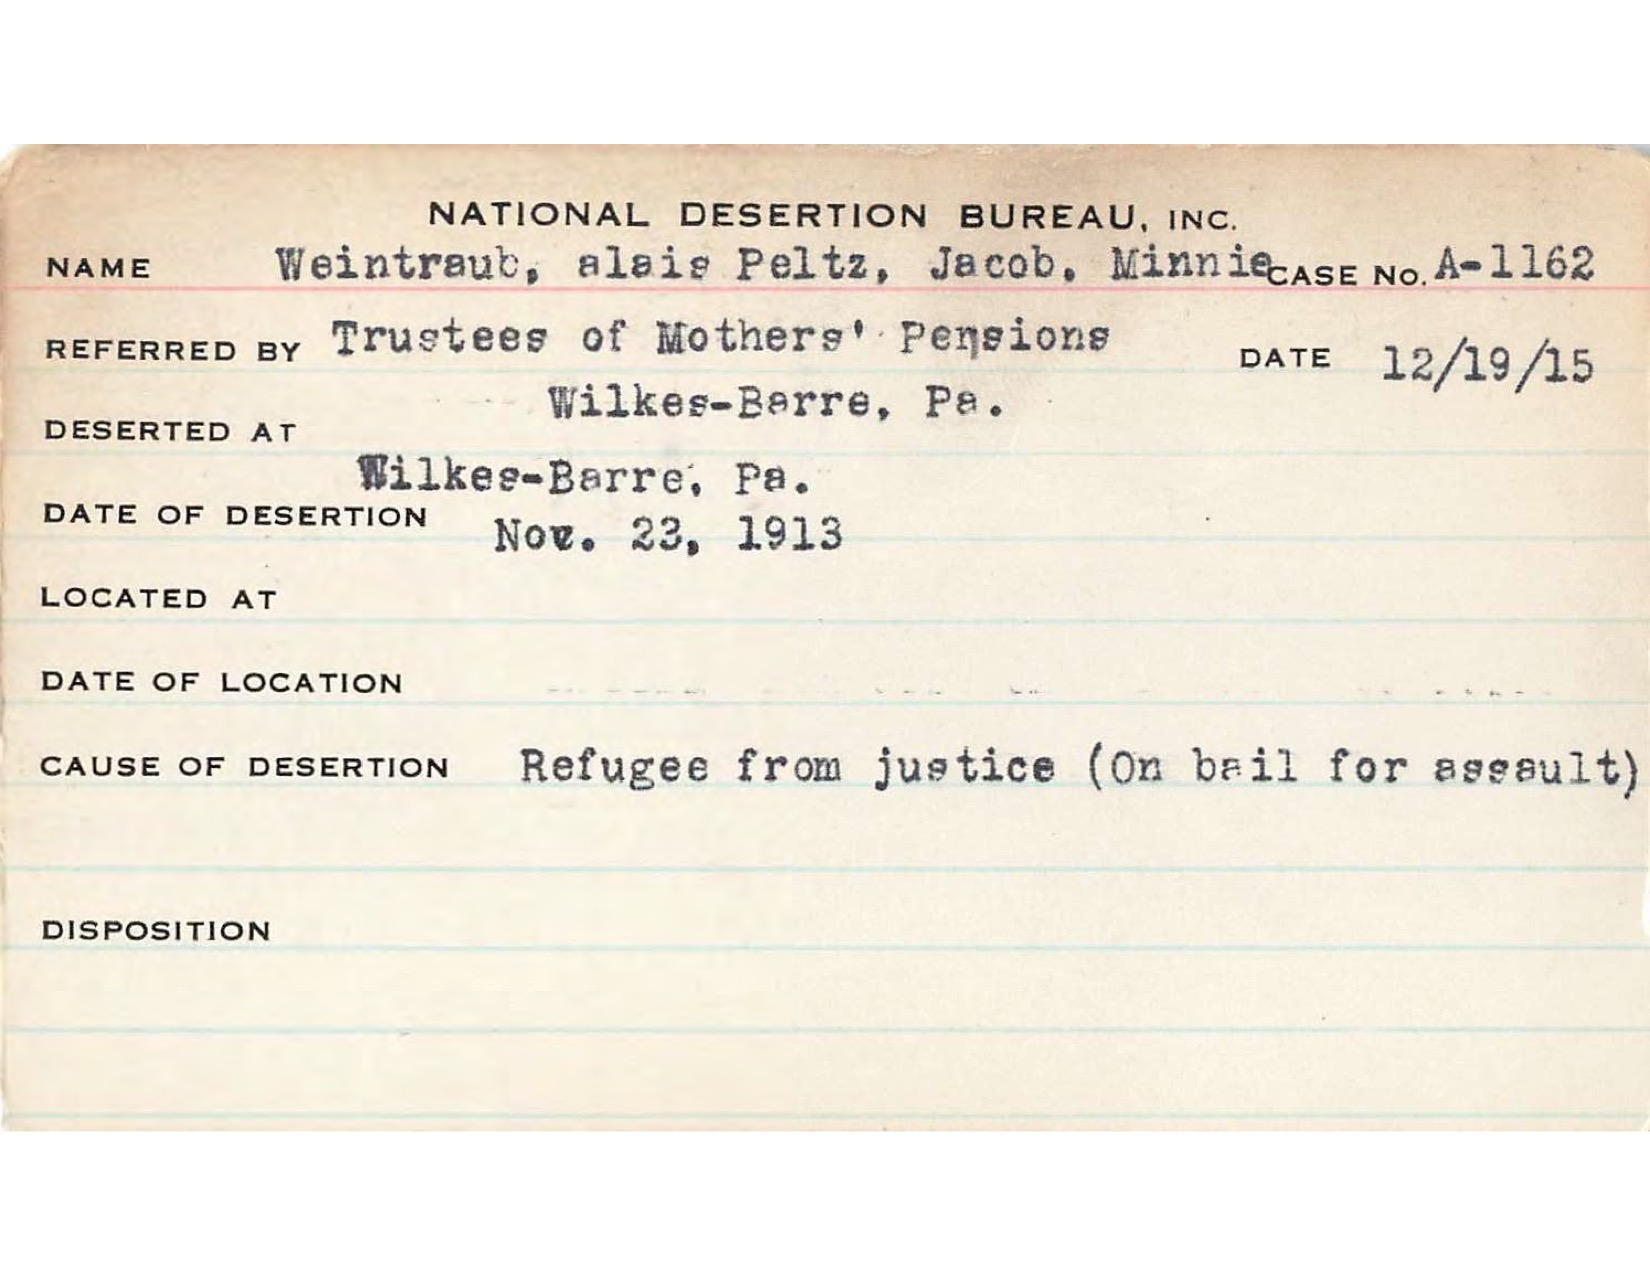 NATIONAL DESERTION BUREAU, INC.
NAME Weintraub, alais Peltz, Jacob, Minnie CASE NO. A-1162
REFERRED BY Trustees of Mothers' Pensions
DATE 12/19/15
Wilkes-Barre, Pa.
DESERTED AT
Wilkes-Barre, Pa.
DATE OF DESERTION Nov. 23, 1913
LOCATED AT
DATE OF LOCATION
CAUSE OF DESERTION Refugee from justice (On bail for assault)
DISPOSITION